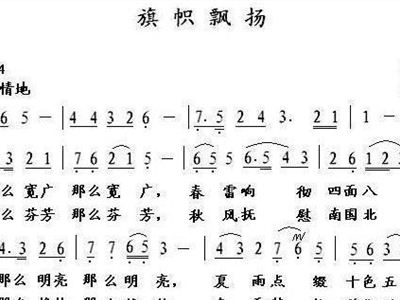 旗帜飘扬
4
情地
6 5 — | 4 4 3 2 6 — | 7. 5 2 4 3. 2 1 2 | 1 —
3 2 1 | 7 6 2 1 5 | 6 5 5 6. 5 4 3 | 2 6 1 2 3
么 宽广 那么 宽 广, 春 雷响 彻 四面八
么 芬芳 那么 芬 芳, 秋 风抚 慰 南国北
4. 3 2 6 | 7 7 6 5 3 | 2 7 6 5 3 2 | 1 1 6 5
那么 明亮 那么 明 亮, 夏 雨点 缀 十色五